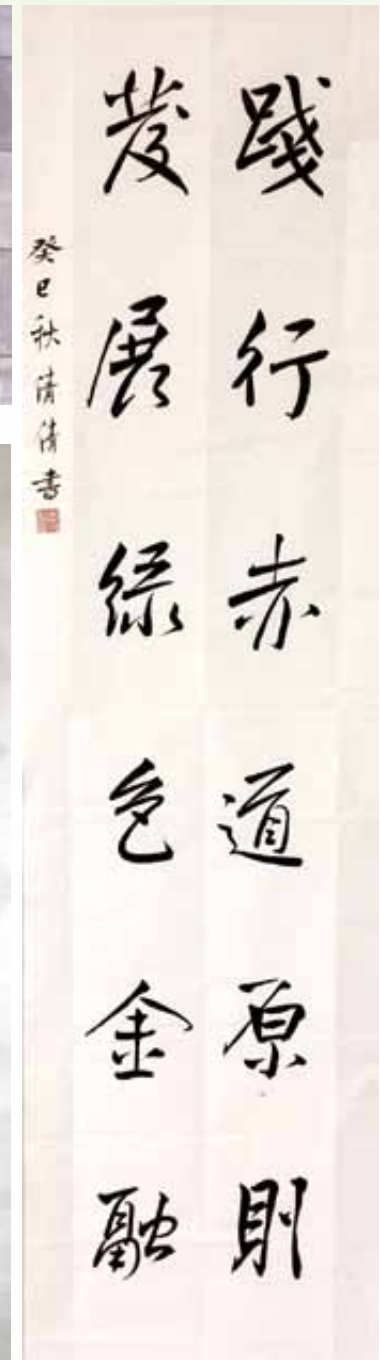 踐行赤道原則
發展綠色金融
癸巳秋清倩書